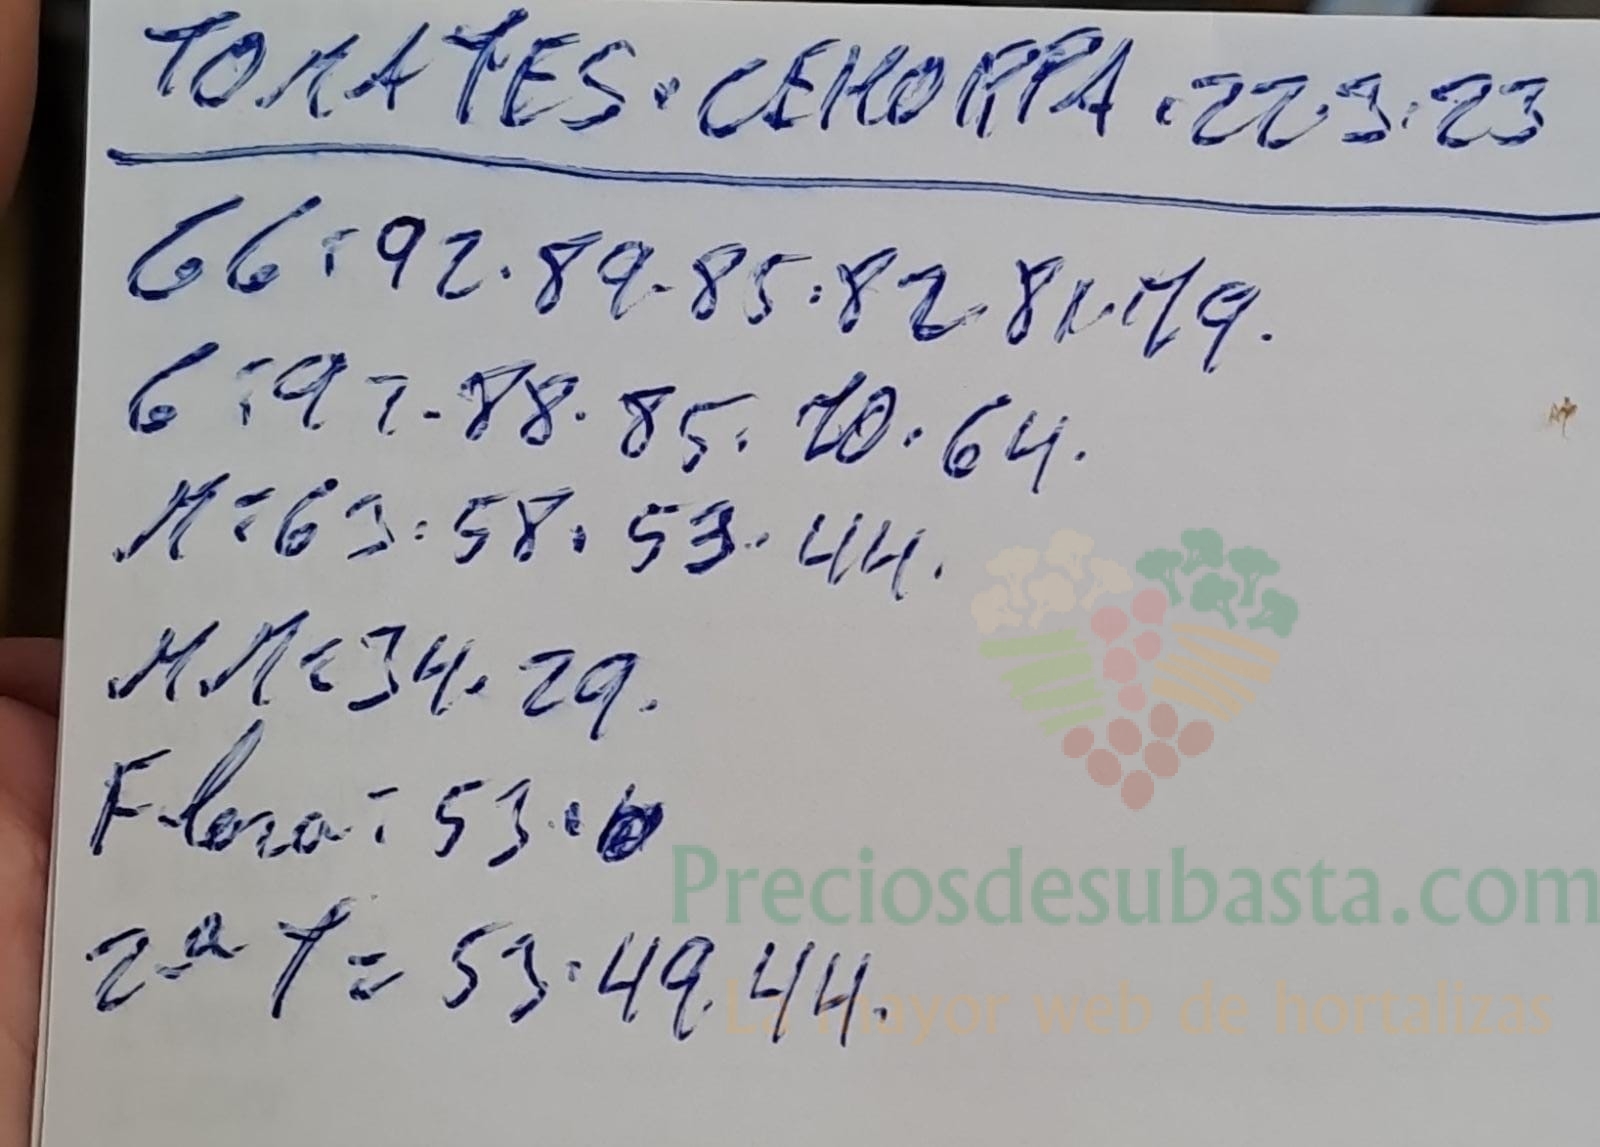 TOMATES · CEHORPA · 22·3·23
GG = 92 · 89 · 85 · 82 · 81 · 79.
G = 97 · 88 · 85 · 70 · 64.
M = 63 · 58 · 53 · 44.
MM = 34 · 29.
Flora = 53 ·
2ª T = 53 · 49 · 44.
Preciosdesubasta.com
La mayor web de hortalizas